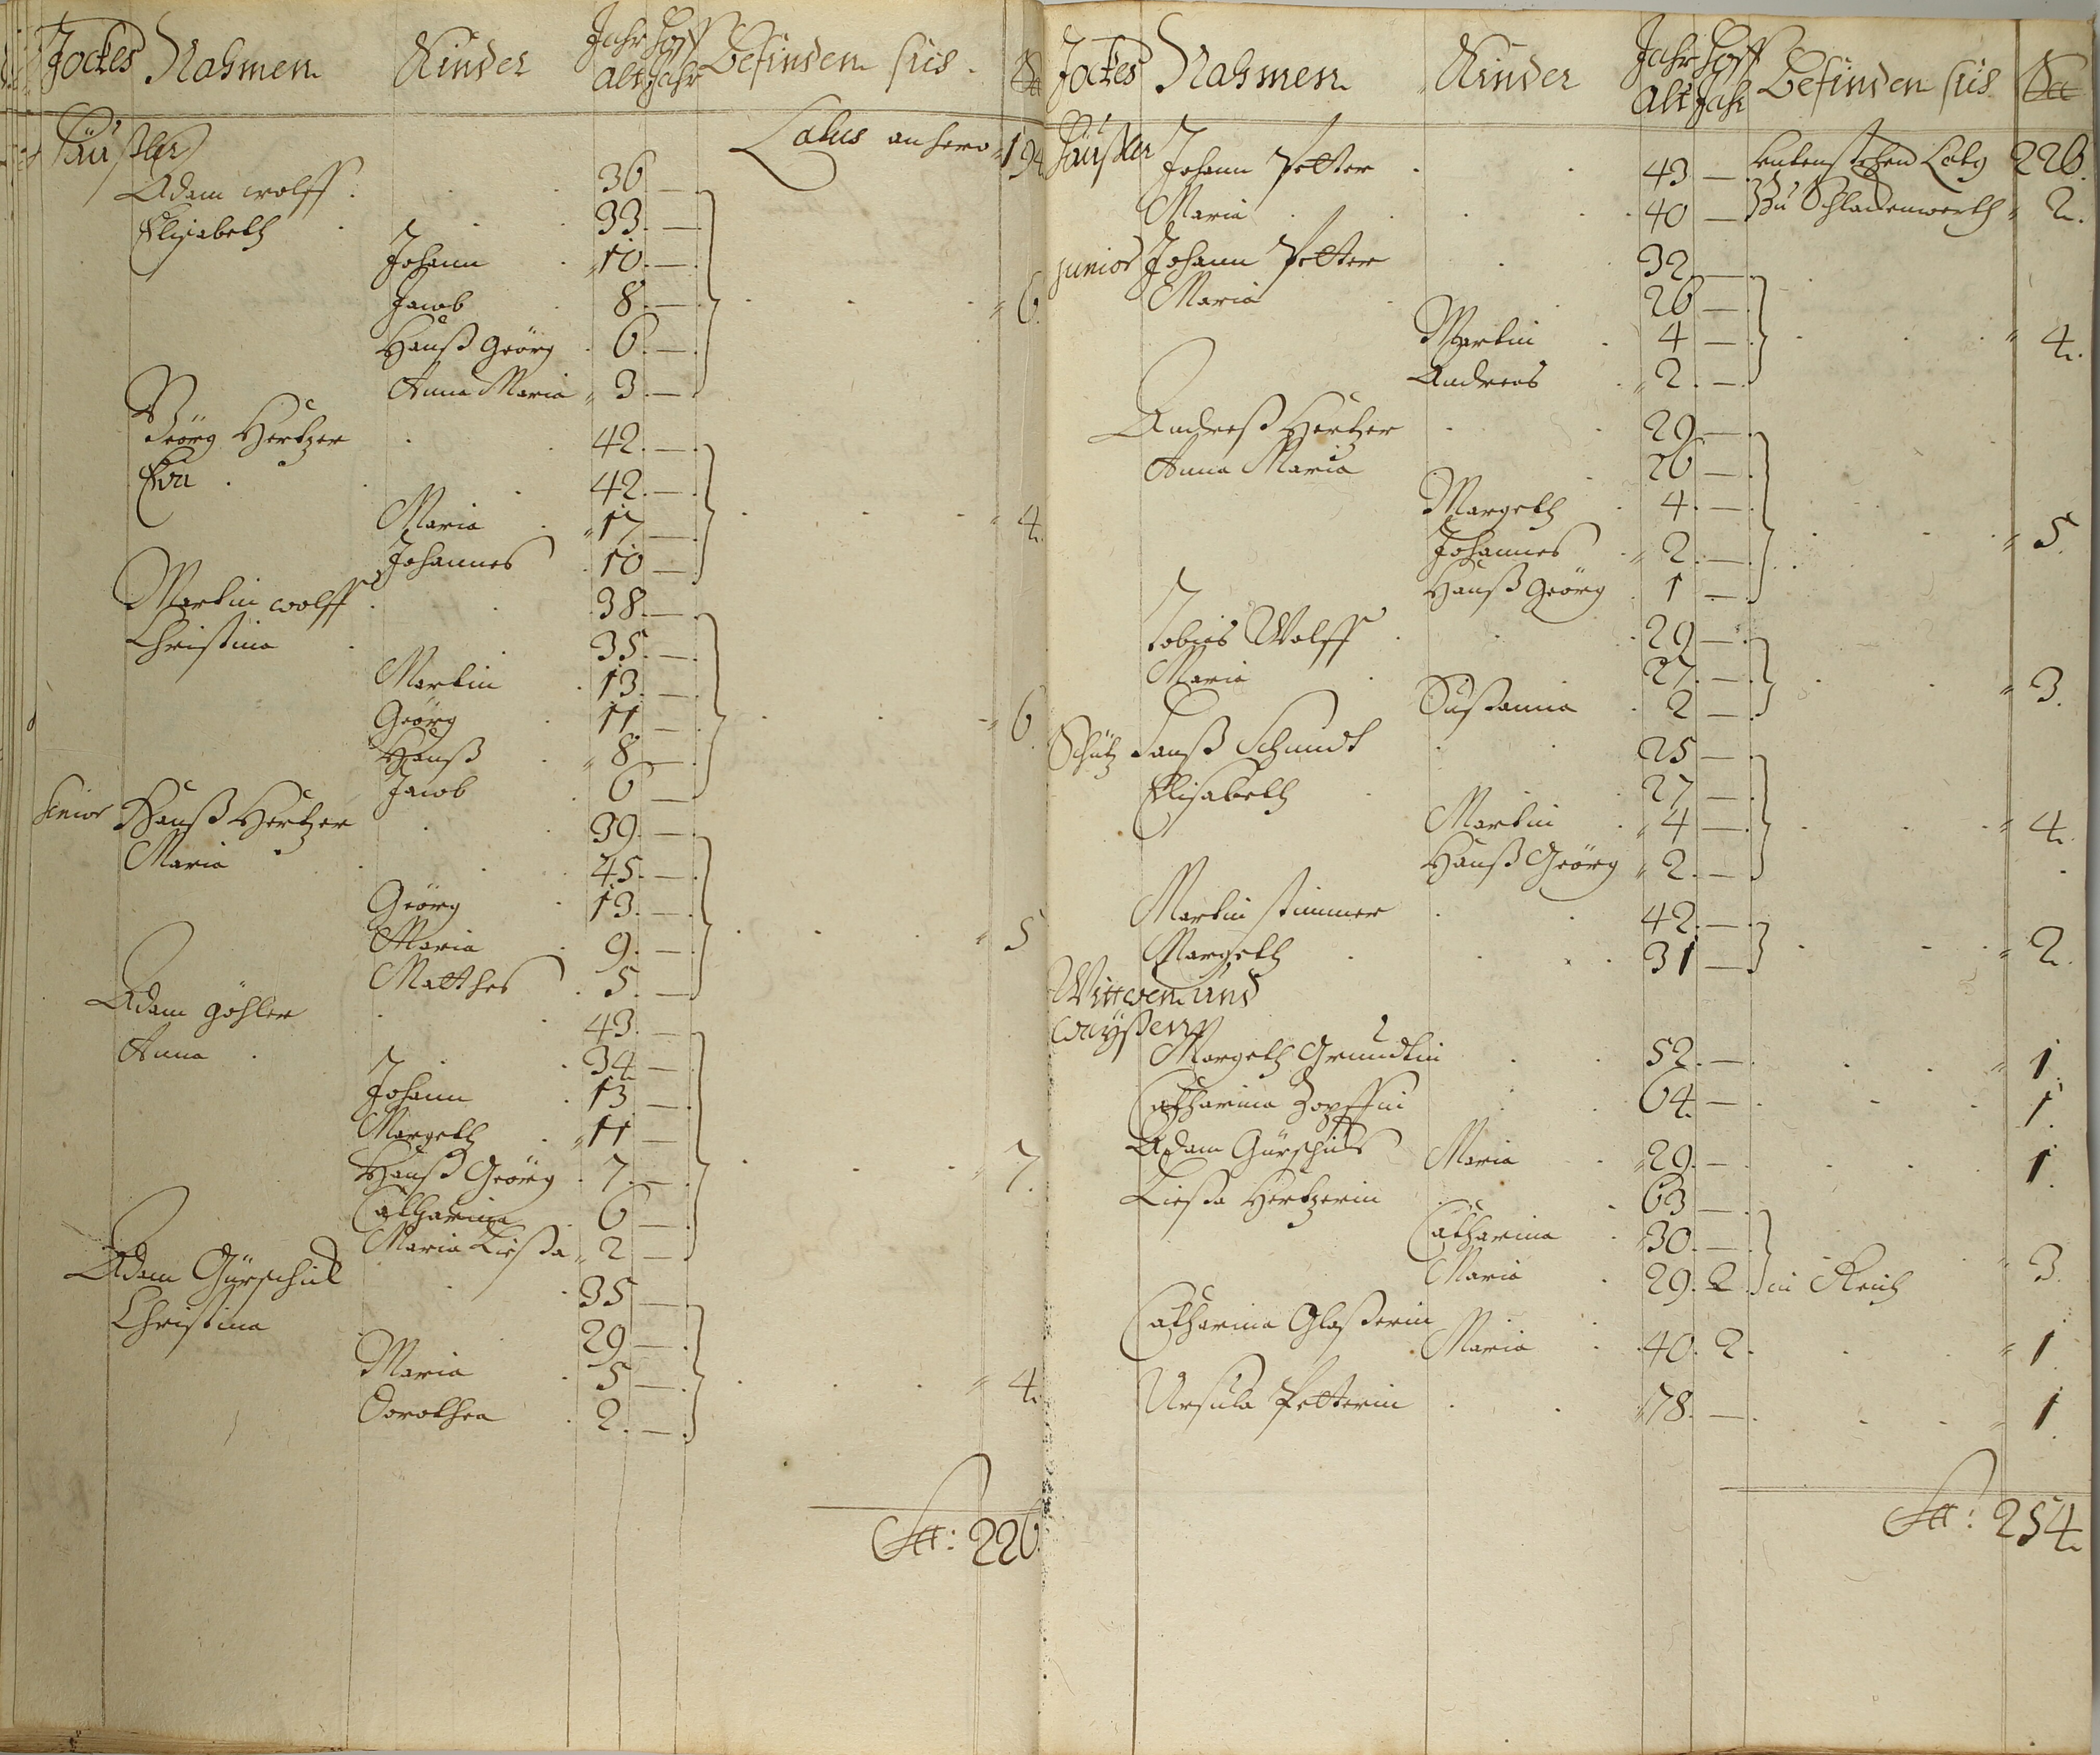 Jockes Nahmen Kinder Jahr Alt Hoff Jahr Befinden sich
Latus anhero 194
Häußler
Adam wolff 36 —
Elisabeth 33 —
Johann 10 —
Jacob 8 — 6
Hanß Geörg 6 —
Anna Maria 3 —
Geörg Hertzer 42 —
Eva 42 —
Maria 17 — 4
Johannes 10 —
Martin wolff 38 —
Christina 35 —
Martin 13 —
Geörg 11 — 6
Hanß 8 —
Jacob 6 —
senior Hanß Hertzer 39 —
Maria 45 —
Geörg 13 —
Maria 9 — 5
Matthes 5 —
Adam göhler 43 —
Anna 34 —
Johann 13 —
Margeth 11 —
Hanß Geörg 7 — 7
Catharina 6 —
Maria Ließa 2 —
Adam Gürschick 35 —
Christina 29 —
Maria 5 — 4
Dorothea 2 —
226
Jockes Nahmen Kinder Jahr Alt Hoff Jahr Befinden sich
Häußler Johann Petter 43 — 226
Maria 40 — Zu Schlackenwerth 2
junior Johann Petter 32 —
Maria 26 —
Martin 4 — 4
Andreas 2 —
Andreß Hertzer 29 —
Anna Maria 26 —
Margeth 4 —
Johannes 2 — 5
Hanß Geörg 1 —
Tobias Wolff 29 —
Maria 27 — 3
Sußanna 2 —
Schütz Hanß Schmidt 25 —
Elisabeth 27 —
Martin 4 — 4
Hanß Geörg 2 —
Martin stimmer 42 —
Margeth 31 — 2
Wittwen und
wayßen
Margeth Grundlin 52 — 1
Catharina Zopffin 64 — 1
Adam Gürschicks Maria 29 — 1
Ließa Hertzerin 63 —
Catharina 30 —
Maria 29 2 in Reich 3
Catharina Glaßerin
Maria 40 2 1
Ursula Petterin 78 — 1
254